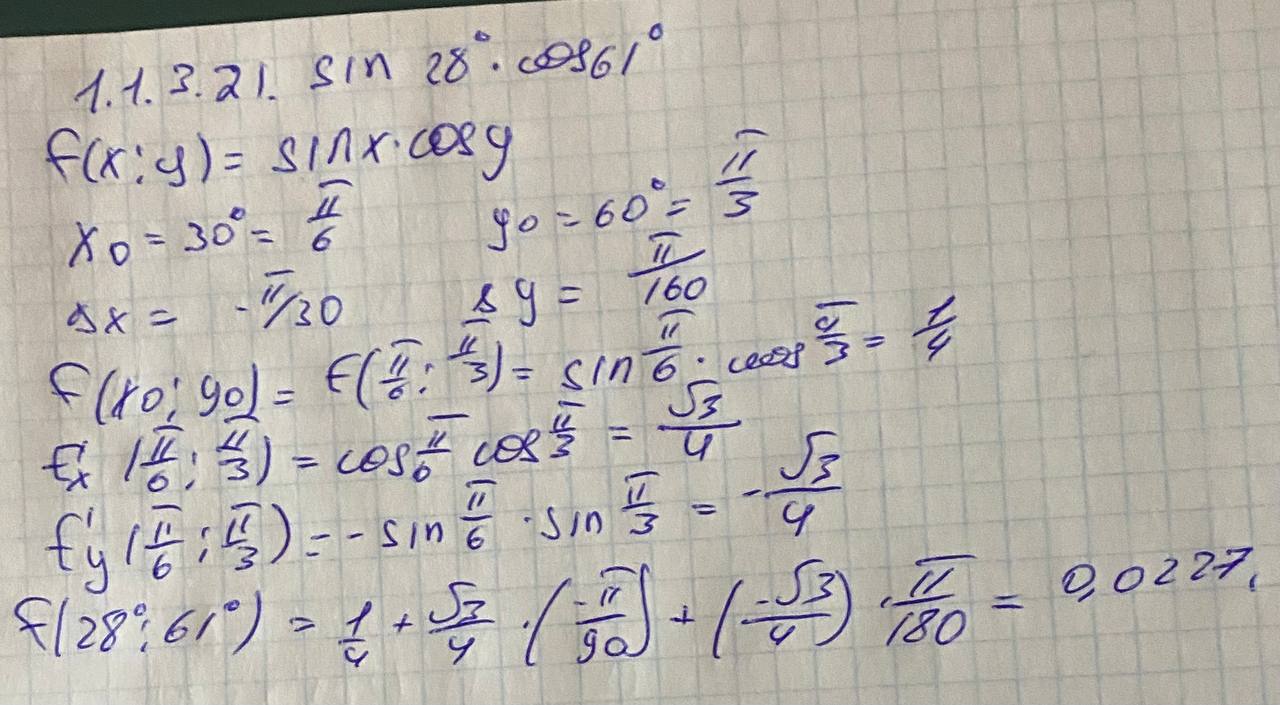 1.1.3.21. sin 28°·cos61°
f(x;y)= sinx·cosy
x0 = 30°= π/6 y0 = 60°= π/3
Δx = -π/30 Δy = π/160
f(x0;y0)= f(π/6;π/3)= sin π/6 · cos π/3 = 1/4
f'x (π/6;π/3) = cos π/6 cos π/3 = √3/4
f'y (π/6;π/3) = -sin π/6 · sin π/3 = -√3/4
f(28°;61°) = 1/4 + √3/4 · (-π/90) + (-√3/4) · π/180 = 0,0227.